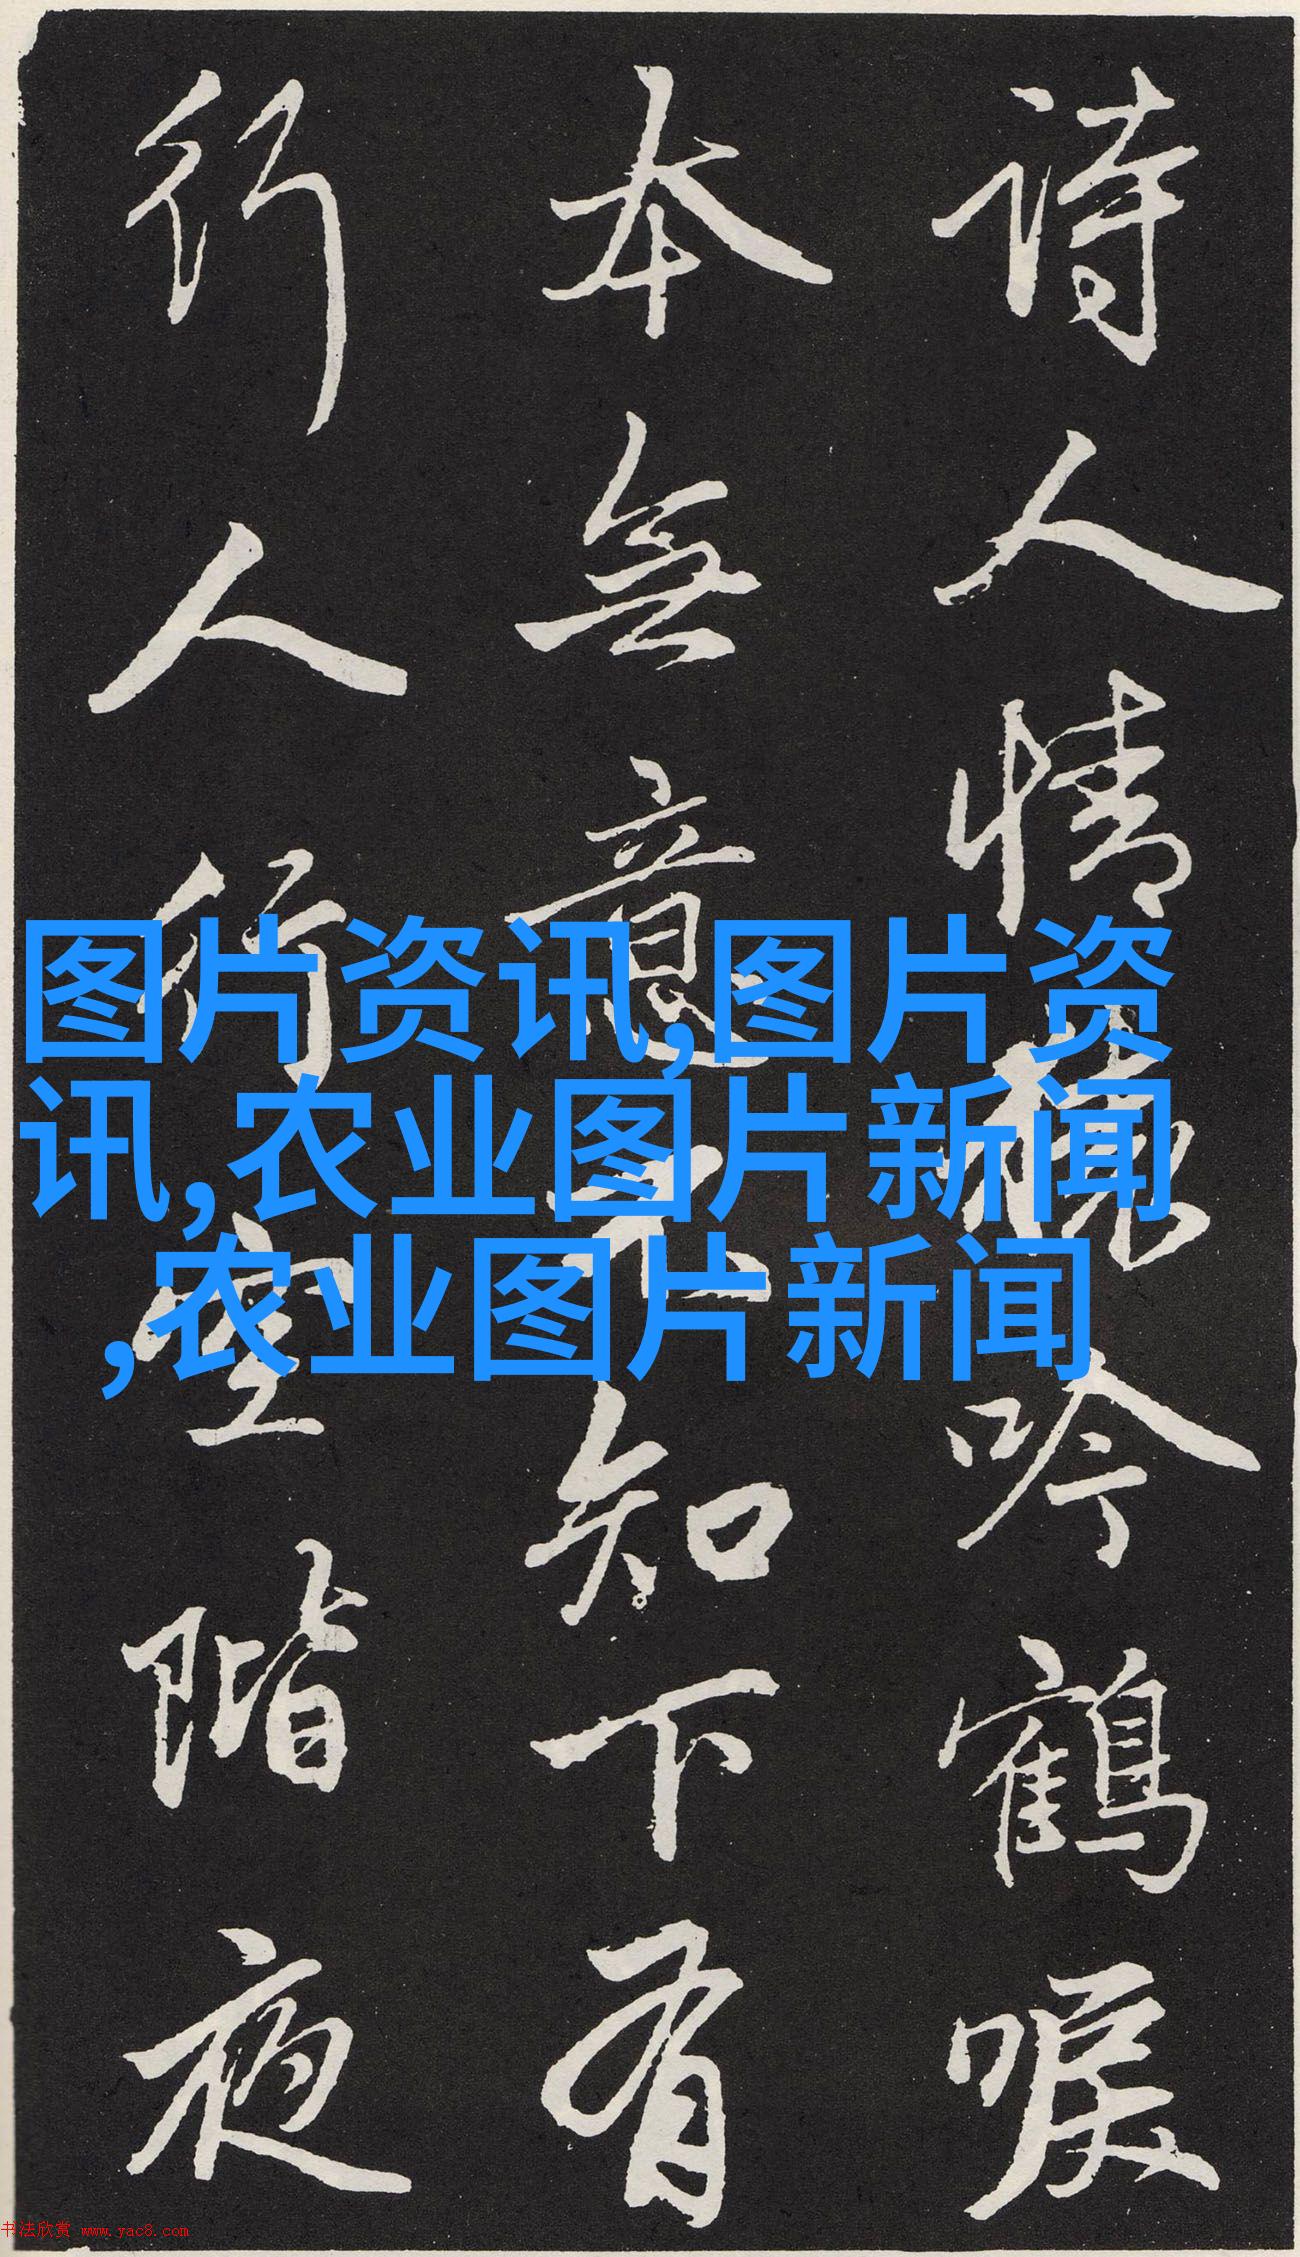 詩人情吟鶴唳
本無意知下有
行人行空階夜
图片资讯,图片资
讯,农业图片新闻
,农业图片新闻
书法欣赏 www.yac8.com